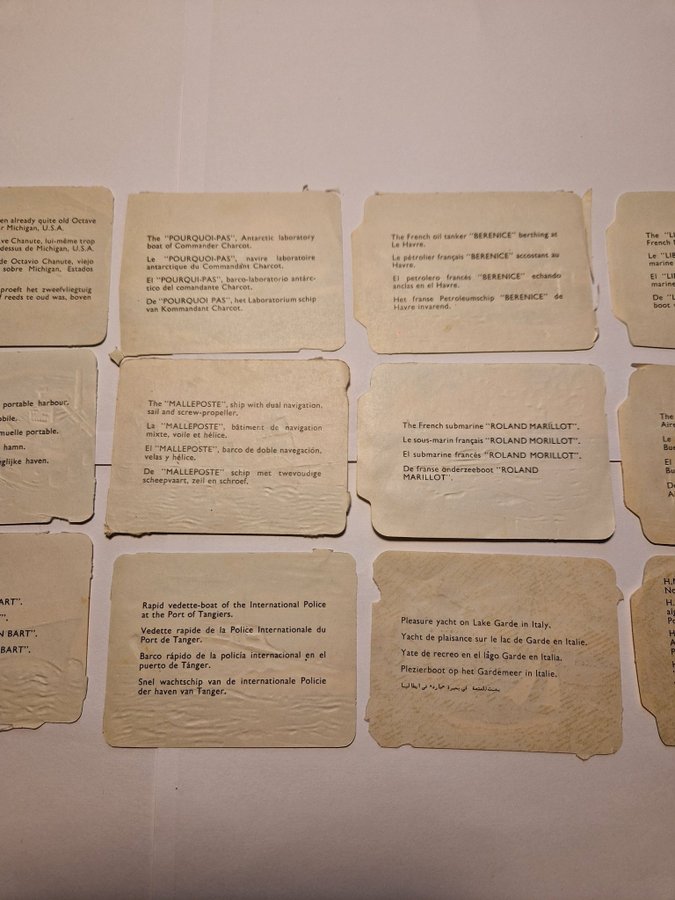 en already quite old Octave
r Michigan, U.S.A.
ve Chanute, lui-même trop
dessus de Michigan, U.S.A.
de Octavio Chanute, viejo
sobre Michigan, Estados
proeft het zweefvliegtuig
f reeds te oud was, boven
The "POURQUOI-PAS", Antarctic laboratory
boat of Commander Charcot.
Le "POURQUOI-PAS", navire laboratoire
antarctique du Commandant Charcot.
El "POURQUI-PAS", barco-laboratorio antárc-
tico del comandante Charcot.
De "POURQUOI PAS", het Laboratorium schip
van Kommandant Charcot.
The French oil tanker "BERENICE" berthing at
Le Havre.
Le pétrolier français "BERENICE" accostant au
Havre.
El petrolero francés "BERENICE" echando
anclas en el Havre.
Het franse Petroleumschip "BERENICE" de
Havre invarend.
The "LI
French
Le "LIB
marine
El "LI
marine
De "L
boot
portable harbour.
obile.
muelle portable.
hamn.
glijke haven.
The "MALLEPOSTE", ship with dual navigation,
sail and screw-propeller.
La "MALLEPOSTE", bâtiment de navigation
mixte, voile et hélice.
El "MALLEPOSTE", barco de doble navegación,
velas y hélice.
De "MALLEPOSTE" schip met twevoudige
scheepvaart, zeil en schroef.
The French submarine "ROLAND MARILLOT".
Le sous-marin français "ROLAND MORILLOT".
El submarine francés "ROLAND MORILLOT".
De franse onderzeeboot "ROLAND
MARILLOT".
The
Aire
Le
Bue
El
Bu
De
Ai
ART".
".
N BART".
BART".
Rapid vedette-boat of the International Police
at the Port of Tangiers.
Vedette rapide de la Police Internationale du
Port de Tanger.
Barco rápido de la policia internacional en el
puerto de Tánger.
Snel wachtschip van de internationale Policie
der haven van Tanger.
Pleasure yacht on Lake Garde in Italy.
Yacht de plaisance sur le lac de Garde en Italie.
Yate de recreo en el lágo Garde en Italia.
Plezierboot op het Gardemeer in Italie.
H.M
No
H.